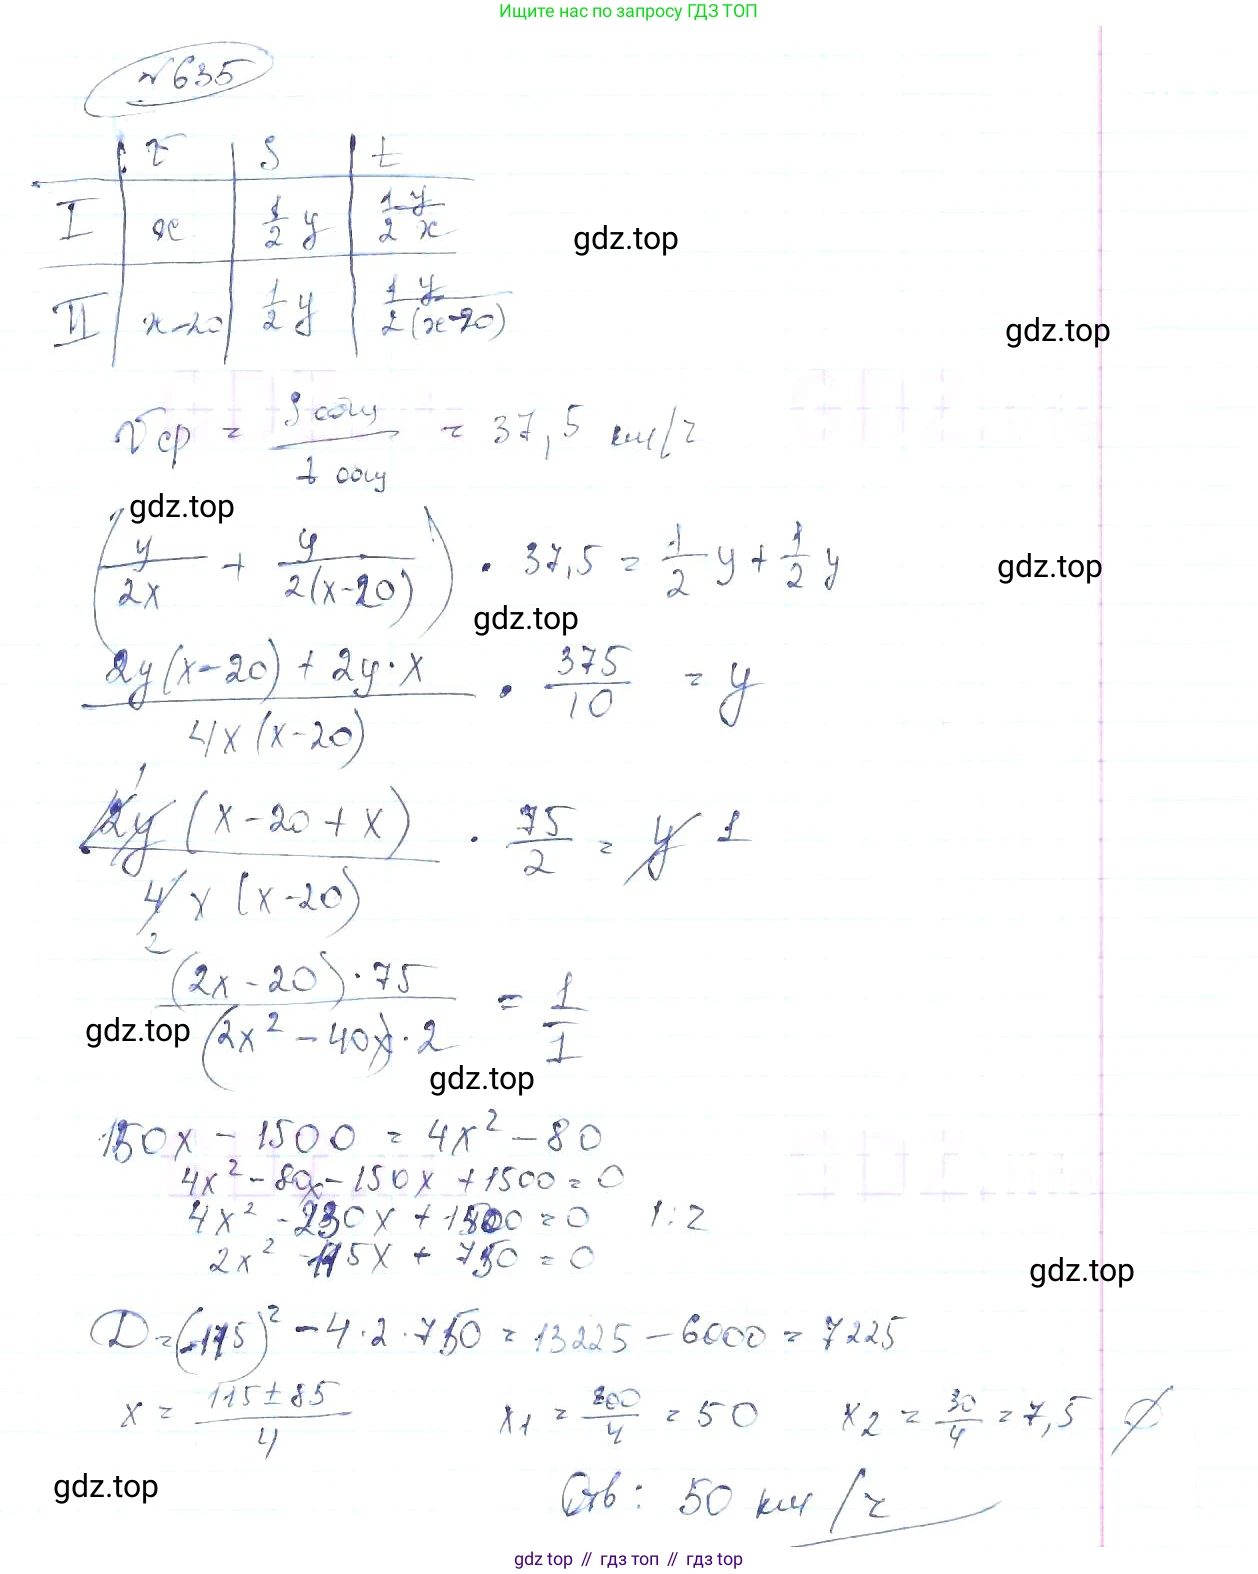 Ищите нас по запросу ГДЗ ТОП
№635
v S t
I x 1/2 y 1y/2x
gdz.top
II x-20 1/2 y 1y/2(x-20)
gdz.top
Vср = S общ / t общ = 37,5 км/ч
gdz.top
(y/2x + y/2(x-20)) · 37,5 = 1/2 y + 1/2 y
gdz.top
gdz.top
2y(x-20) + 2y·x / 4x(x-20) · 375/10 = y
1
2y (x-20+x) / 4x (x-20) · 75/2 = y 1
2
(2x-20)·75 / (2x²-40x)·2 = 1/1
gdz.top
gdz.top
150x - 1500 = 4x² - 80
4x² - 80x - 150x + 1500 = 0
4x² - 230x + 1500 = 0 |:2
2x² - 115x + 750 = 0
gdz.top
D = (-115)² - 4·2·750 = 13225 - 6000 = 7225
x = 115±85 / 4 x1 = 200/4 = 50 x2 = 30/4 = 7,5 ∅
gdz.top
Отв: 50 км/ч
gdz.top // гдз топ // gdz.top